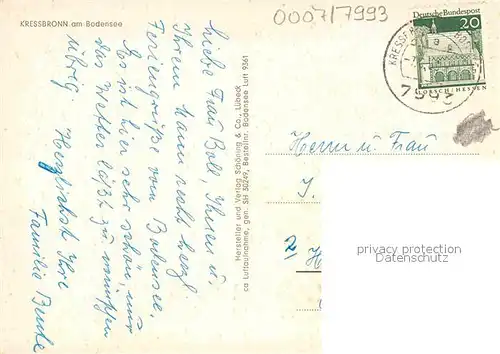 KRESSBRONN am Bodensee
0007/7993
Deutsche Bundespost
20
LORSCH/HESSEN
7993
Liebe Frau Boll, Ihnen u.
Ihrem Mann recht herzl.
Feriengrüße vom Bodensee.
Es ist hier sehr schön, nur
das Wetter läßt zu wünschen
übrig. Herzlichst Ihre
Familie
Hersteller und Verlag Schöning & Co., Lübeck
ca Luftaufnahme, gen. SH 30249, Bestellnr. Bodensee Luft 9361
Herrn u. Frau
2
privacy protection
Datenschutz